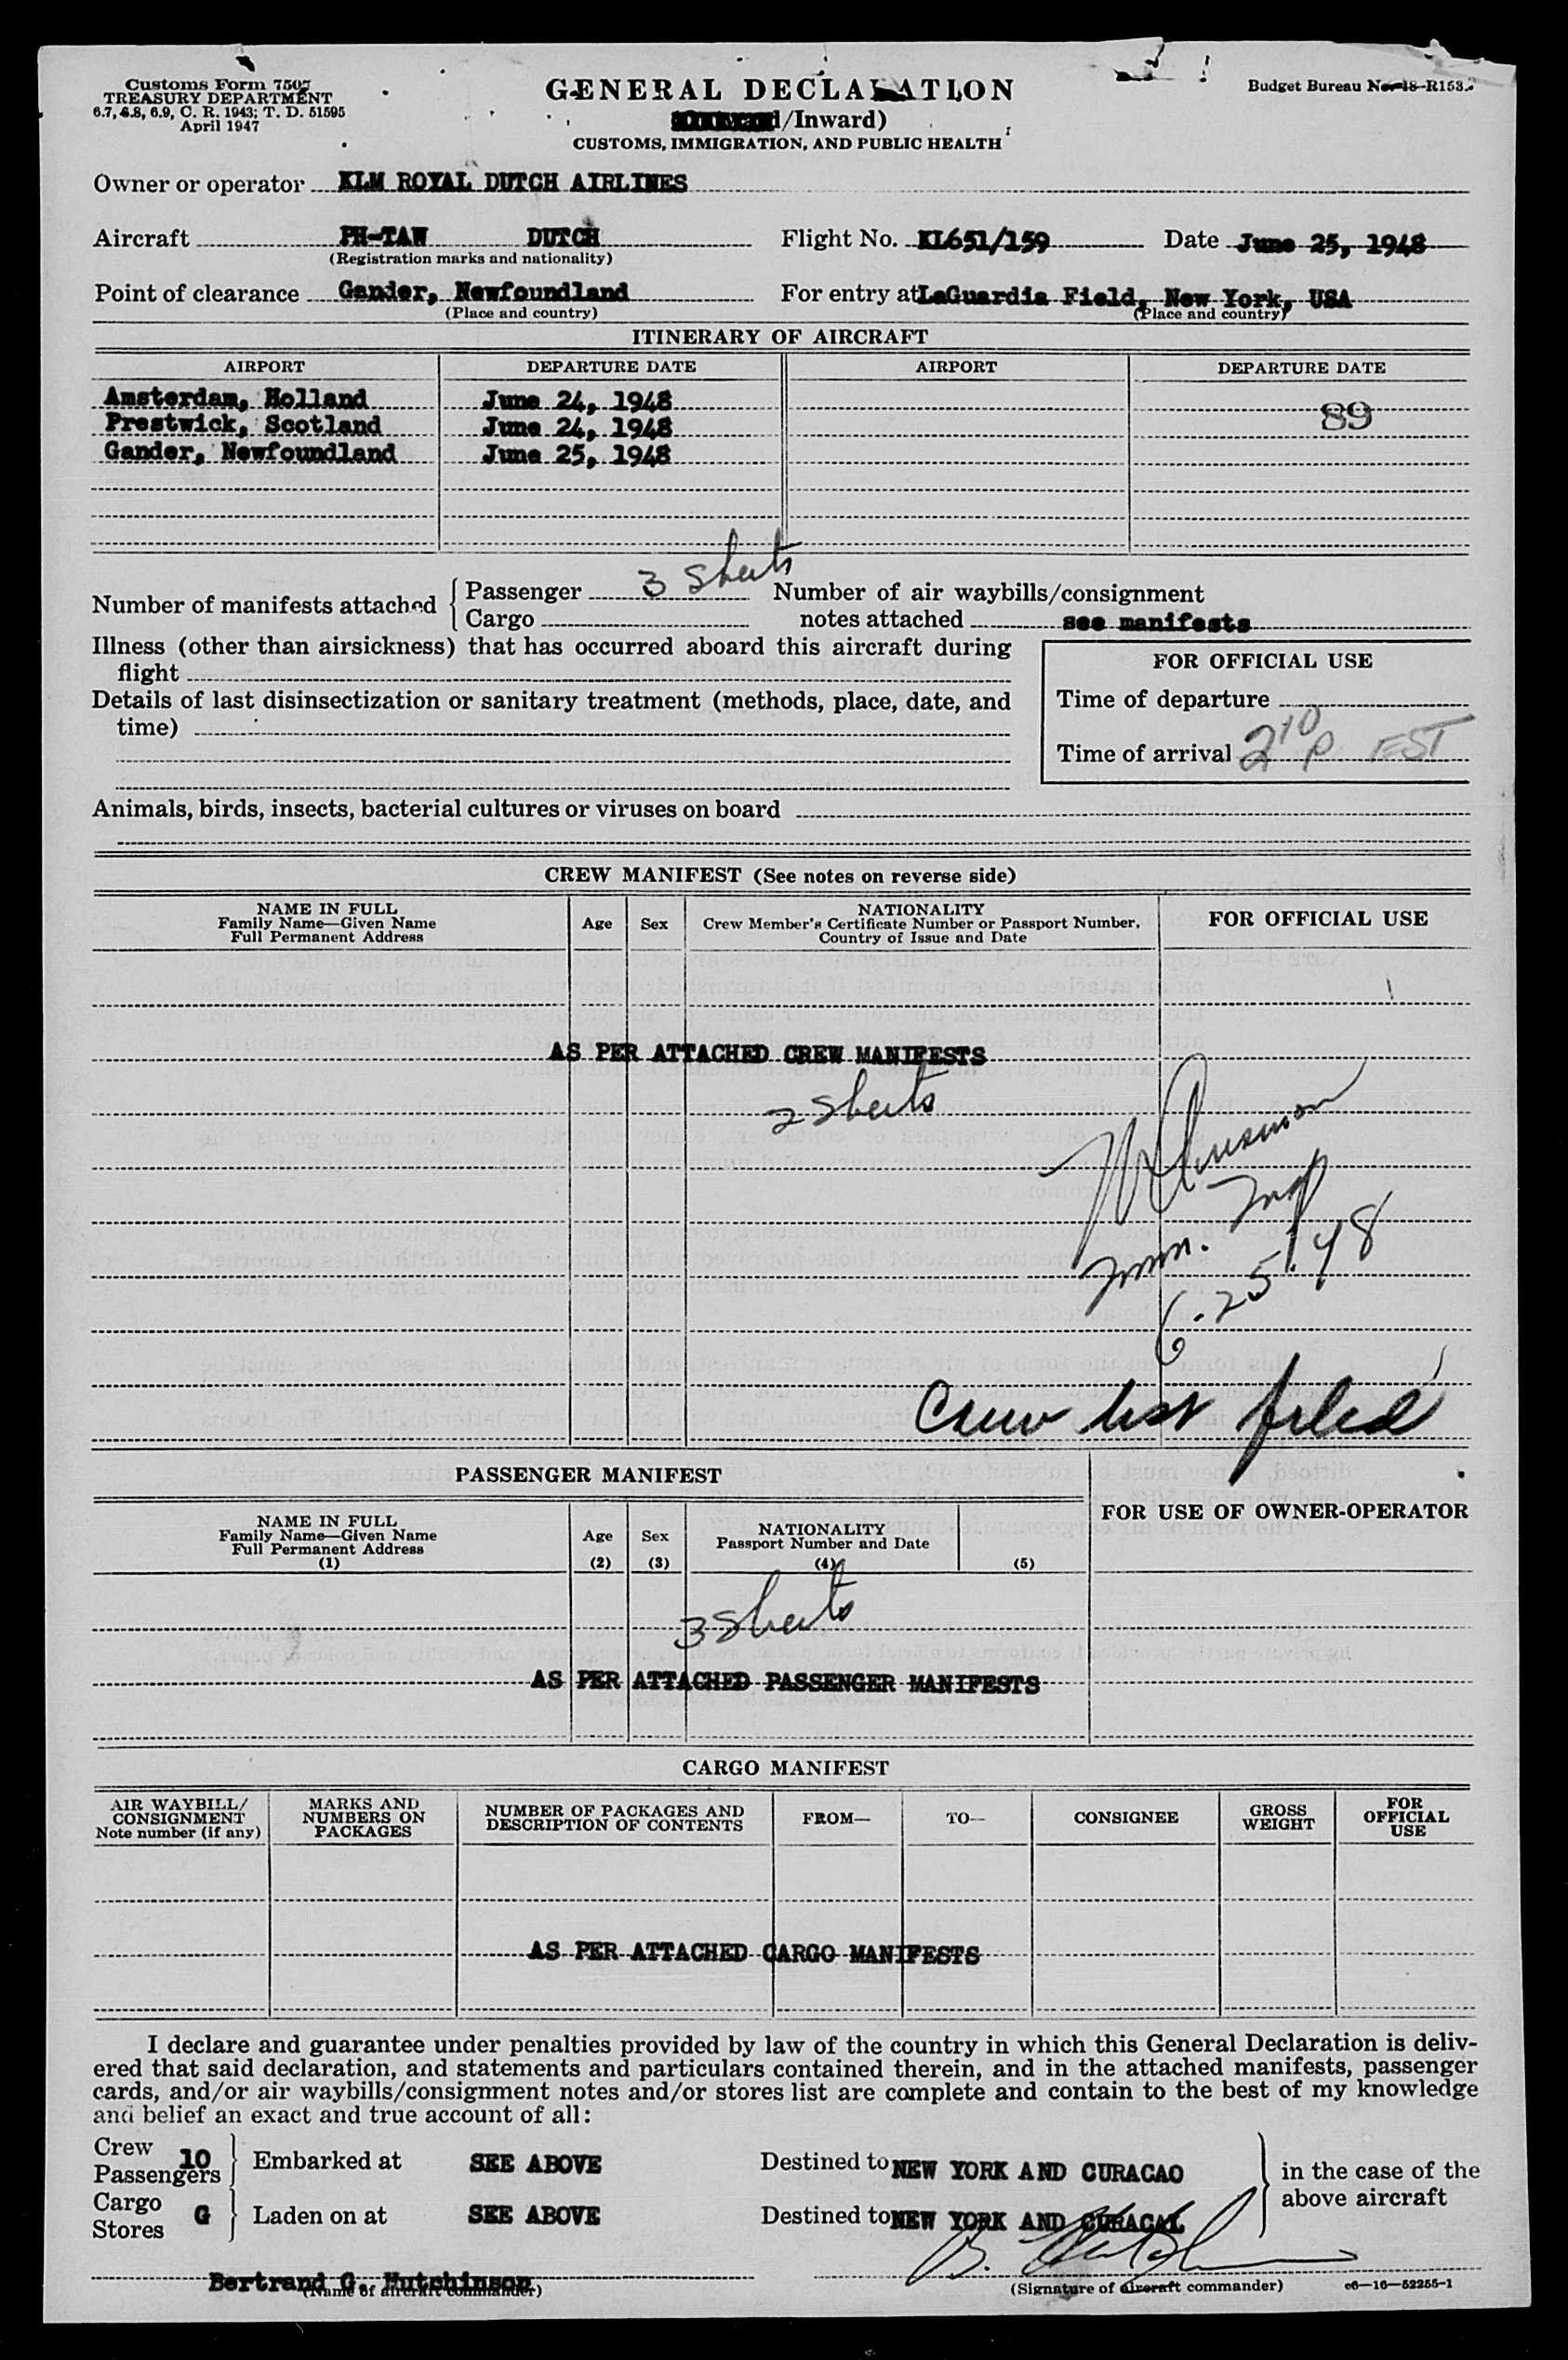 Customs Form 7507
TREASURY DEPARTMENT
6.7, 6.8, 6.9, C. R. 1943; T. D. 51595
April 1947
GENERAL DECLARATION
/Inward)
CUSTOMS, IMMIGRATION, AND PUBLIC HEALTH
Budget Bureau No. 48-R153.
Owner or operator KLM ROYAL DUTCH AIRLINES
Aircraft PH-TAW DUTCH Flight No. KL651/159 Date June 25, 1948
(Registration marks and nationality)
Point of clearance Gander, Newfoundland For entry at LaGuardia Field, New York, USA
(Place and country) (Place and country)
ITINERARY OF AIRCRAFT
AIRPORT DEPARTURE DATE AIRPORT DEPARTURE DATE
Amsterdam, Holland June 24, 1948
89
Prestwick, Scotland June 24, 1948
Gander, Newfoundland June 25, 1948
Number of manifests attached
Passenger 3 Sheets
Cargo
Number of air waybills/consignment
notes attached see manifests
Illness (other than airsickness) that has occurred aboard this aircraft during
flight
Details of last disinsectization or sanitary treatment (methods, place, date, and
time)
FOR OFFICIAL USE
Time of departure
Time of arrival 2 10 P EST
Animals, birds, insects, bacterial cultures or viruses on board
CREW MANIFEST (See notes on reverse side)
NAME IN FULL
Family Name—Given Name
Full Permanent Address
Age
Sex
NATIONALITY
Crew Member's Certificate Number or Passport Number,
Country of Issue and Date
FOR OFFICIAL USE
AS PER ATTACHED CREW MANIFESTS
2 Sheets
Imm. Insp
6-25-48
Crew list filed
PASSENGER MANIFEST
FOR USE OF OWNER-OPERATOR
NAME IN FULL
Family Name—Given Name
Full Permanent Address
(1)
Age
(2)
Sex
(3)
NATIONALITY
Passport Number and Date
(4)
(5)
3 Sheets
AS PER ATTACHED PASSENGER MANIFESTS
CARGO MANIFEST
AIR WAYBILL/
CONSIGNMENT
Note number (if any)
MARKS AND
NUMBERS ON
PACKAGES
NUMBER OF PACKAGES AND
DESCRIPTION OF CONTENTS
FROM—
TO—
CONSIGNEE
GROSS
WEIGHT
FOR
OFFICIAL
USE
AS PER ATTACHED CARGO MANIFESTS
I declare and guarantee under penalties provided by law of the country in which this General Declaration is deliv-
ered that said declaration, and statements and particulars contained therein, and in the attached manifests, passenger
cards, and/or air waybills/consignment notes and/or stores list are complete and contain to the best of my knowledge
and belief an exact and true account of all:
Crew 10
Passengers
Embarked at SEE ABOVE Destined to NEW YORK AND CURACAO
in the case of the
above aircraft
Cargo G
Stores
Laden on at SEE ABOVE Destined to NEW YORK AND CURACAL
Bertrand G. Hutchinson
(Name of aircraft commander)
(Signature of aircraft commander)
c6—16—52255-1